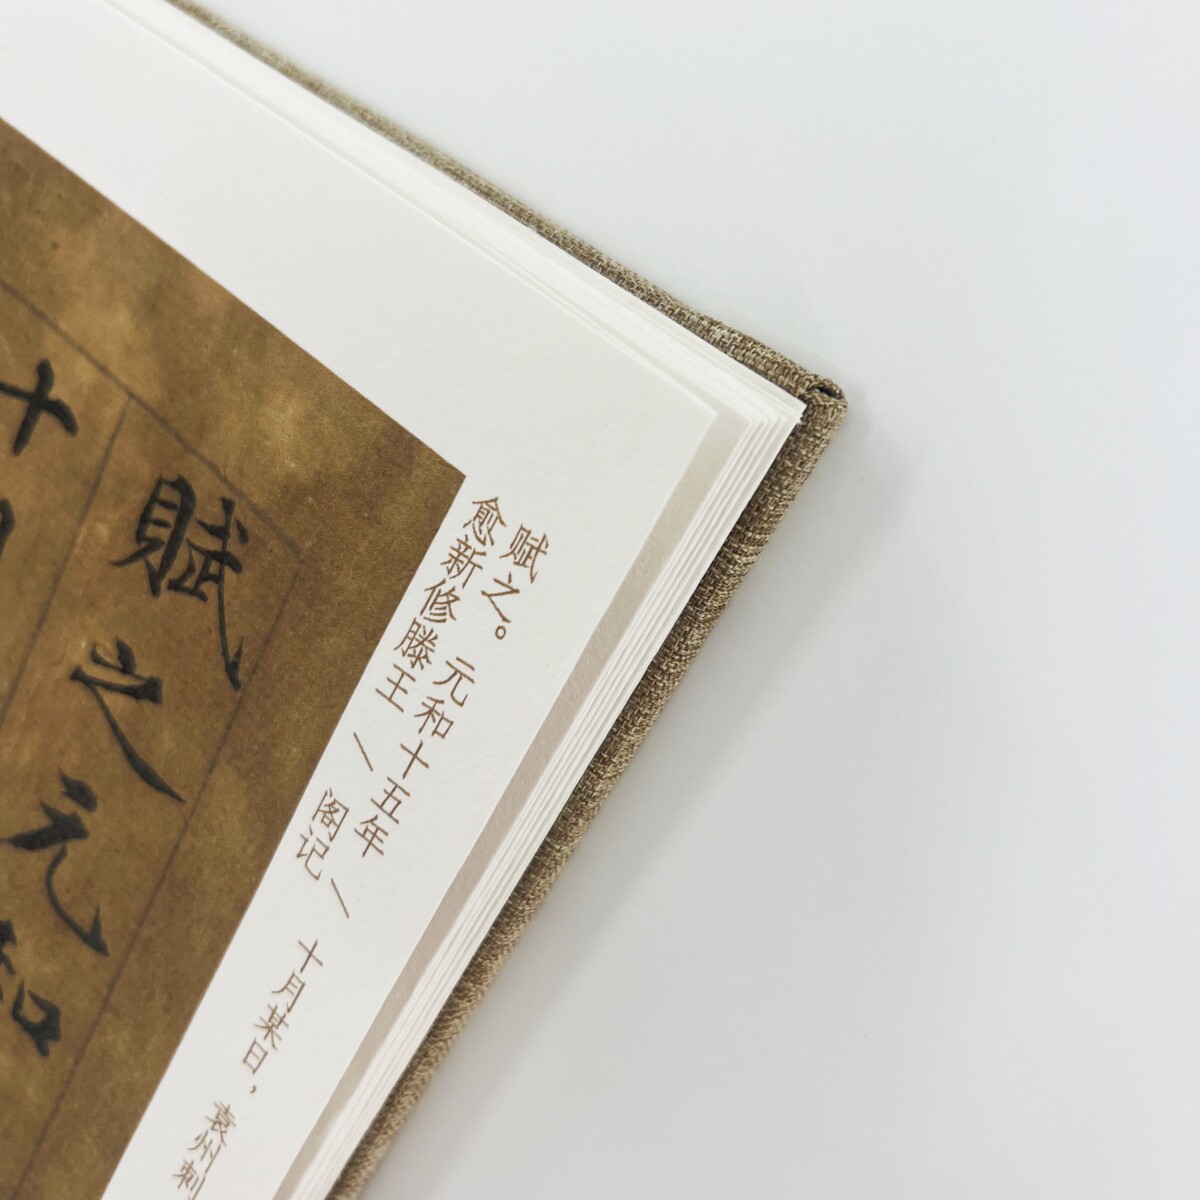 赋之。元和十五年／十月某日，袁州刺
愈新修滕王／阁记
賦之元和
十